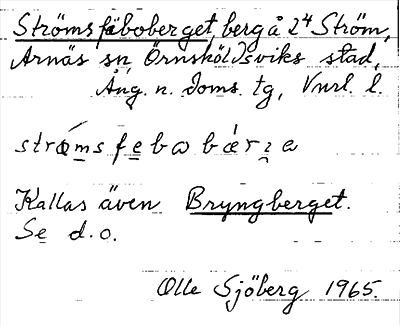 Strömsfäboberget, berg å 2⁴ Ström,
Arnäs sn Örnsköldsviks stad,
Ång. n. doms. tg, Vnrl. l.
strömsfebω bærze
Kallas även Bryngberget.
Se d.o.
Olle Sjöberg 1965.